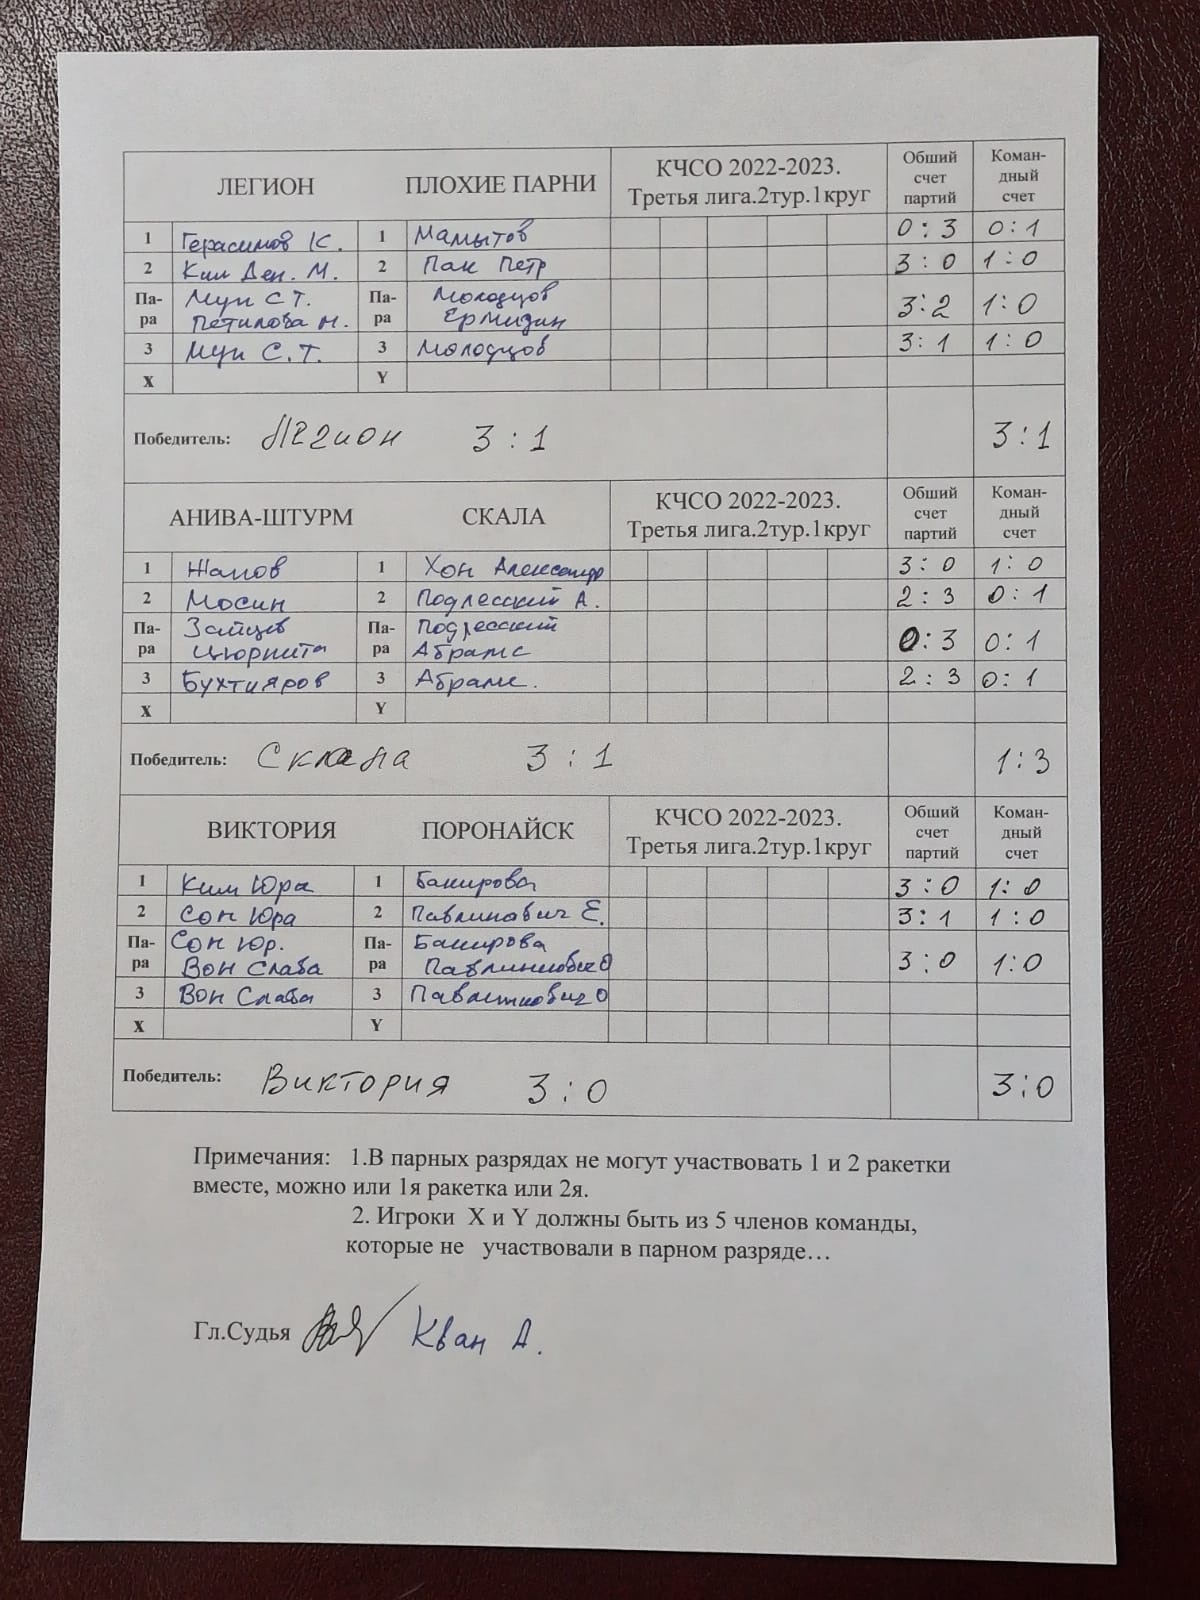 ЛЕГИОН ПЛОХИЕ ПАРНИ КЧСО 2022-2023. Третья лига.2тур.1круг Обший счет партий Коман-дный счет
1 Герасимов К. 1 Мамытов 0:3 0:1
2 Ким Ден. М. 2 Пак Петр 3:0 1:0
Па-ра Мун С.Т. Па-ра Молодцов 3:2 1:0
Петилова Н. Ермизин
3 Мун С.Т. 3 Молодцов 3:1 1:0
X Y
Победитель: Легион 3:1 3:1
АНИВА-ШТУРМ СКАЛА КЧСО 2022-2023. Третья лига.2тур.1круг Обший счет партий Коман-дный счет
1 Жапов 1 Хон Александр 3:0 1:0
2 Мосин 2 Подлесский А. 2:3 0:1
Па-ра Зайцев Па-ра Подлесский 0:3 0:1
Цюрпита Абрамс
3 Бухтияров 3 Абрамс. 2:3 0:1
X Y
Победитель: Скала 3:1 1:3
ВИКТОРИЯ ПОРОНАЙСК КЧСО 2022-2023. Третья лига.2тур.1круг Обший счет партий Коман-дный счет
1 Ким Юра 1 Бакирова 3:0 1:0
2 Сон Юра 2 Павлинович Е. 3:1 1:0
Па-ра Сон Юр. Па-ра Бакирова 3:0 1:0
Вон Слава
3 Вон Слава 3
X Y
Победитель: Виктория 3:0 3:0
Примечания: 1.В парных разрядах не могут участвовать 1 и 2 ракетки
вместе, можно или 1я ракетка или 2я.
2. Игроки X и Y должны быть из 5 членов команды,
которые не участвовали в парном разряде…
Гл.Судья Кван А.